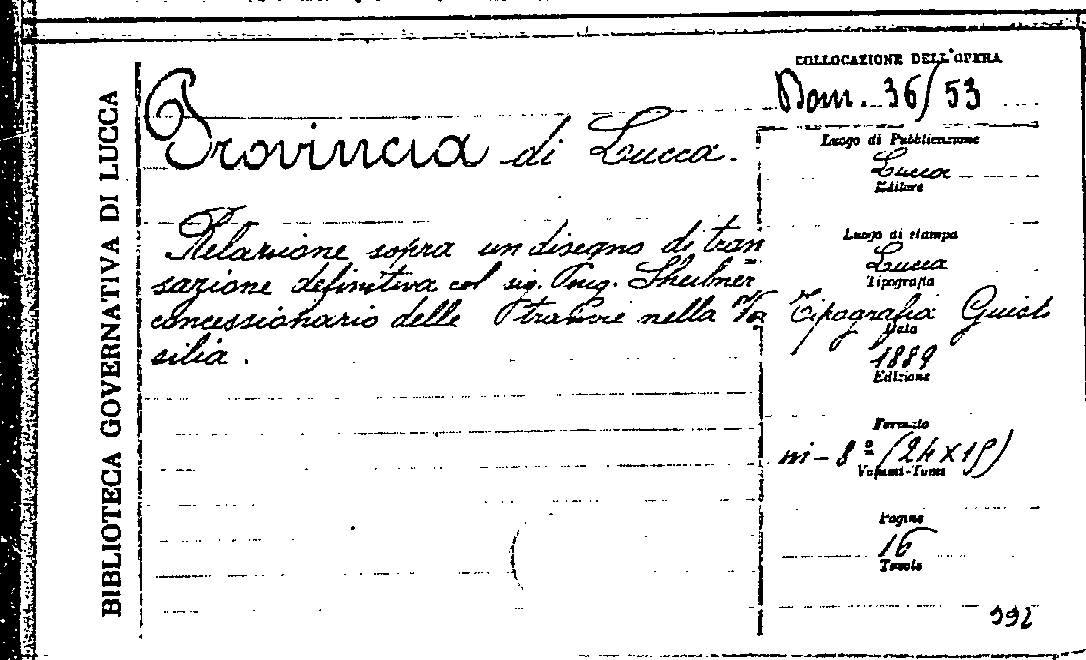 BIBLIOTECA GOVERNATIVA DI LUCCA
COLLOCAZIONE DELL'OPERA
Bom. 36/53
Provincia di Lucca.
Relazione sopra un disegno di tran
sazione definitiva col sig. Ing.
concessionario delle Tramvie nella Ver
silia.
Luogo di Pubblicazione
Lucca
Editore
Luogo di stampa
Lucca
Tipografia
Tipografia Giusti
Data
1889
Edizione
Formato
in-8º (24x15)
Volumi-Tomi
Pagine
16
Tavole
992